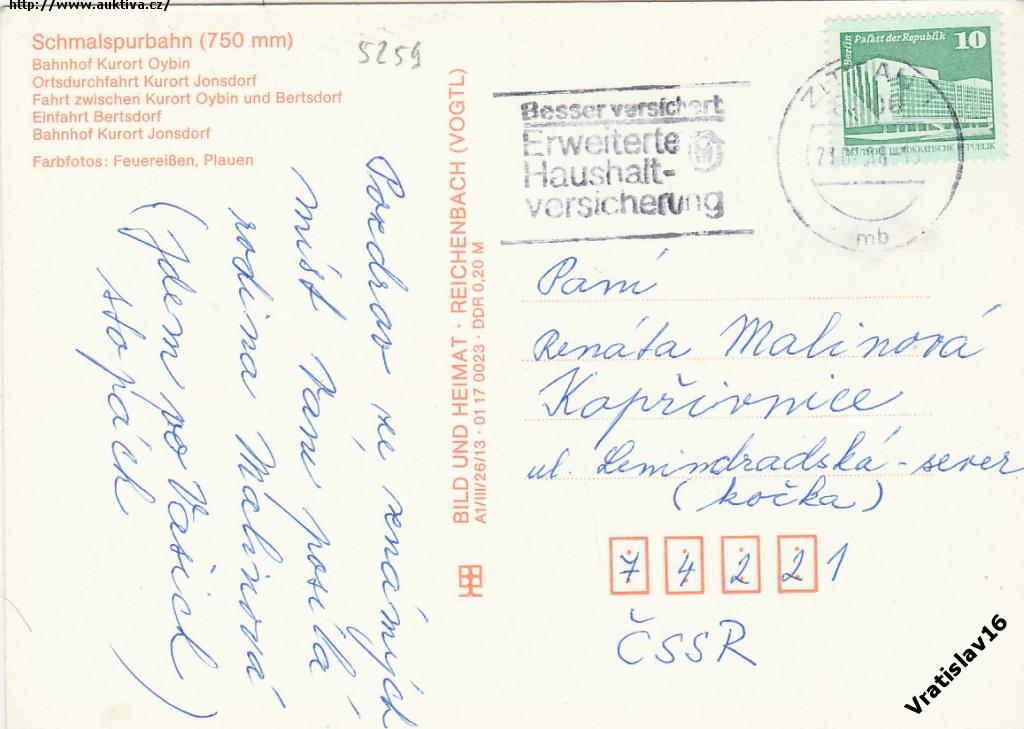 http://www.auktiva.cz/
Schmalspurbahn (750 mm)
Bahnhof Kurort Oybin
Ortsdurchfahrt Kurort Jonsdorf
Fahrt zwischen Kurort Oybin und Bertsdorf
Einfahrt Bertsdorf
Bahnhof Kurort Jonsdorf
Farbfotos: Feuereißen, Plauen
5259
Pozdrav ze známých
míst Vám posílá
rodina Malinová
(Jdem po Vašich
stopách)
BILD UND HEIMAT · REICHENBACH (VOGTL)
A1/III/26/13 · 01 17 0023 · DDR 0,20 M
Besser versichert
Erweiterte
Haushalt-
versicherung
ZITTAU
mb
Berlin Palast der Republik
10
DEUTSCHE DEMOKRATISCHE REPUBLIK
Paní
Renáta Malinová
Kopřivnice
ul. Lenindradská-sever
(kočka)
74221
ČSSR
Vratislav16